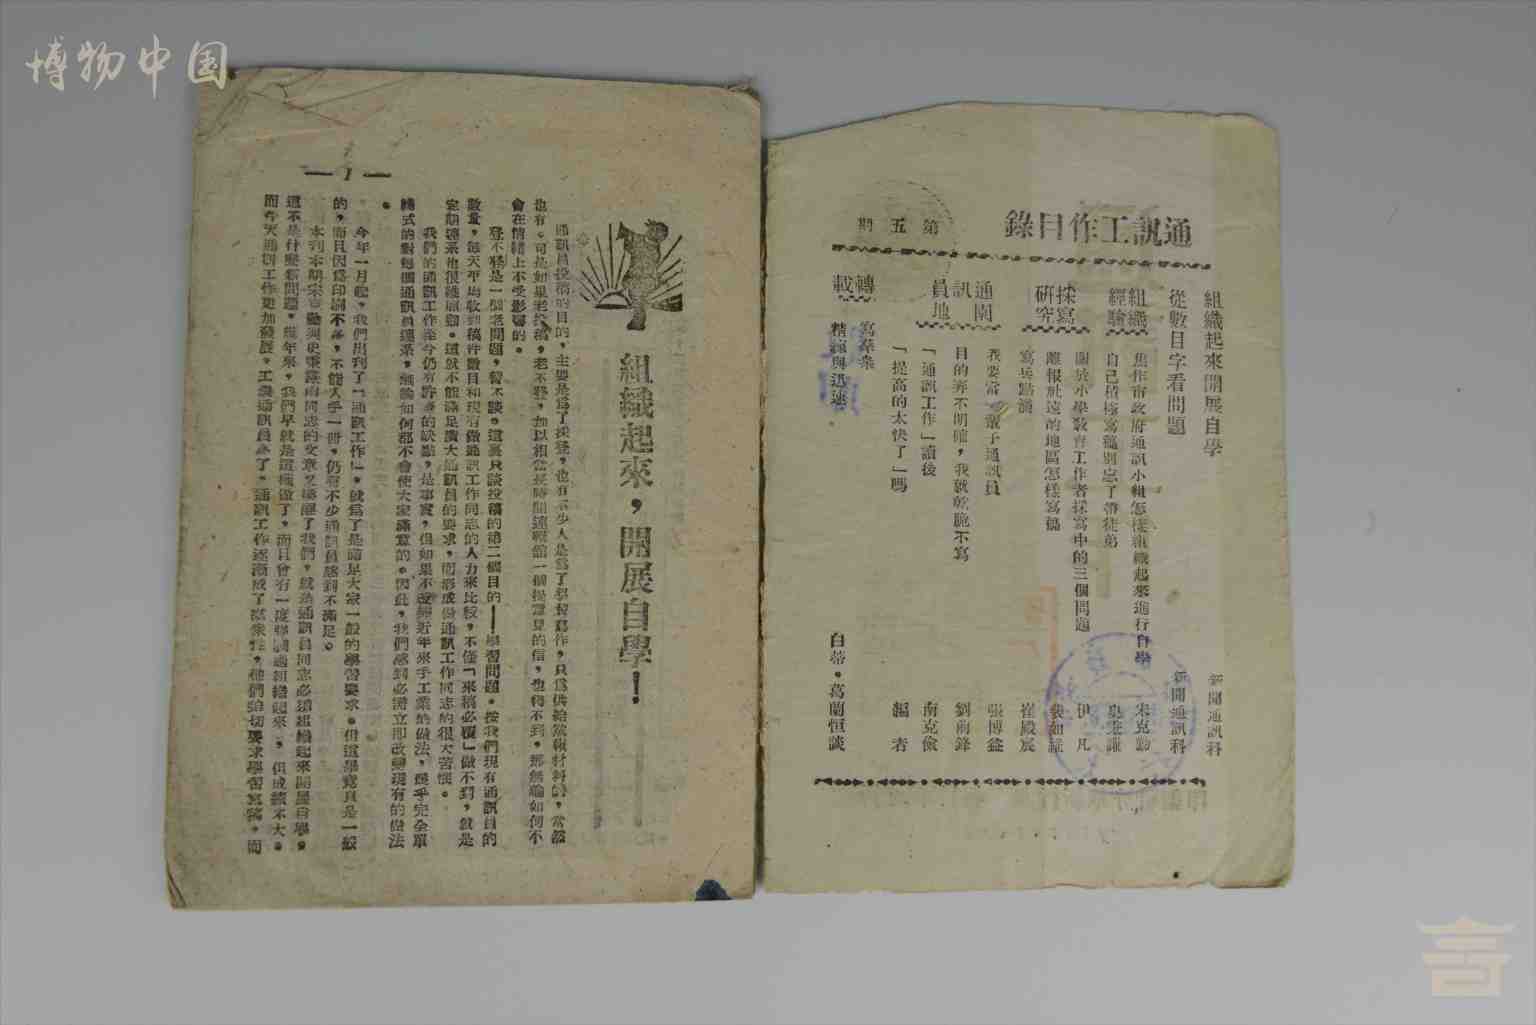 博物中国
通訊工作目錄
第五期
組織起來開展自學
新聞通訊科
從數目字看問題
新聞通訊科
組織經驗
焦作市政府通訊小組怎樣組織起來進行自學
宋克勤
自己積極寫稿別忘了帶徒弟
採寫研究
關於小學教育工作者採寫中的三個問題
伊凡
離報社遠的地區怎樣寫稿
寫兵點滴
崔殿宸
通訊員園地
我要當一輩子通訊員
張博益
目的弄不明確,我就乾脆不寫
劉前鋒
「通訊工作」讀後
南克儉
「提高的太快了」嗎
編者
轉載
寫羣衆
精練與迅速
白蒂・葛蘭恒談
—1—
組織起來,開展自學!
通訊員投稿的目的,主要是爲了採登,也有不少人是爲了學習寫作,只爲供給黨報材料的,當然
也有。可是如果老投稿,老不登,加以相當長時間連報館一個提意見的信,也得不到,那無論如何不
會在情緒上不受影響的。
登不登是一個老問題,暫不談。這裏只談投稿的第二個目的——學習問題。按我們現有通訊員的
數量,每天平均收到稿件數目和現有做通訊工作同志的人力來比較,不僅「來稿必覆」做不到,就是
定期連系也很難顧。這就不能滿足廣大通訊員的要求,而形成份通訊工作同志的很大苦惱。
我們的通訊工作在今仍有許多的缺點,是事實,但如果不改變近年來手工業的做法,幾乎完全單
轉式的對每個通訊員連系,無論如何都不會使大家滿意的。因此,我們感到必需立即改變現有的做法
。
今年一月起,我們出刊了「通訊工作」,就爲了是滿足大家一般的學習要求。但這畢竟只是一般
的,而且因爲印刷不多,不能人手一冊,仍有不少通訊員感到不滿足。
本刊本期宋克勤與史秉謙兩同志的文章又提醒了我們,就是通訊員同志必須組織起來開展自學。
這不是什麽新問題。幾年來,我們早就是這樣做了,而且會有一度強調過組織起來,但成績不大。
而今天通訊工作更加發展,工農通訊員多了,通訊工作逐漸成了羣衆性,他們迫切要求學習寫稿,而